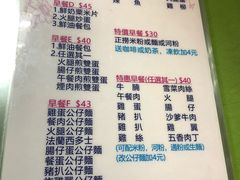 早餐D $45
1.鮮奶麥米片
2.火腿炒蛋
3.鮮油餐包
早餐E $40
1.鮮油餐包
2.任選其一
火腿煎雙蛋
腸仔煎雙蛋
午餐肉煎雙蛋
煙肉煎雙蛋
早餐F $43
雞蛋公仔麵
火腿公仔麵
法蘭西多士
腸仔蛋公仔麵
餐蛋公仔麵
豬扒公仔麵
魚
特價早餐 $30
正撈米粉或麵或河粉
送咖啡或奶茶，凍飲加4元
特惠早餐(任選其一) $40
牛腩
雪菜肉絲
午餐肉
火腿
雞蛋
腸仔
豬扒
沙爹牛肉
雞扒
雞翼
牛丸
五香肉丁
(可配米粉，河粉，通粉或生麵)
(改公仔麵加4元)